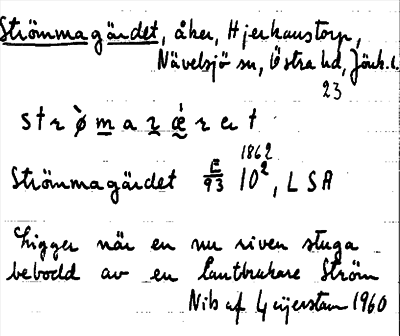 Strömmagärdet, åker, Hjerkanstorp,
Nävelsjö sn, Östra hd, Jönk.l.
23
strø̀maʀǽret
1862
Strömmagärdet E/93 10², LSA
Ligger när en nu riven stuga
bebodd av en lantbrukare Ström
Nils af Ugglerstam 1960